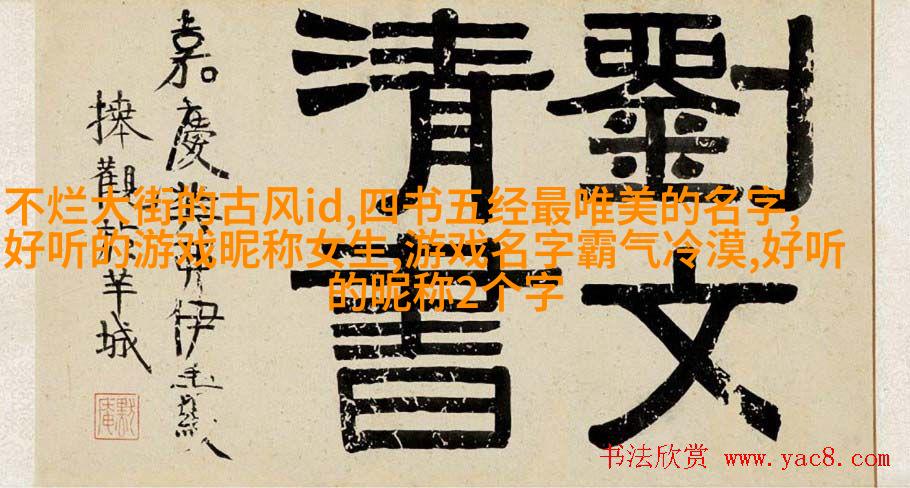 劉文
清書
嘉慶
伊
揅觀
羊城
不烂大街的古风id,四书五经最唯美的名字,
好听的游戏昵称女生,游戏名字霸气冷漠,好听
的昵称2个字
书法欣赏 www.yac8.com